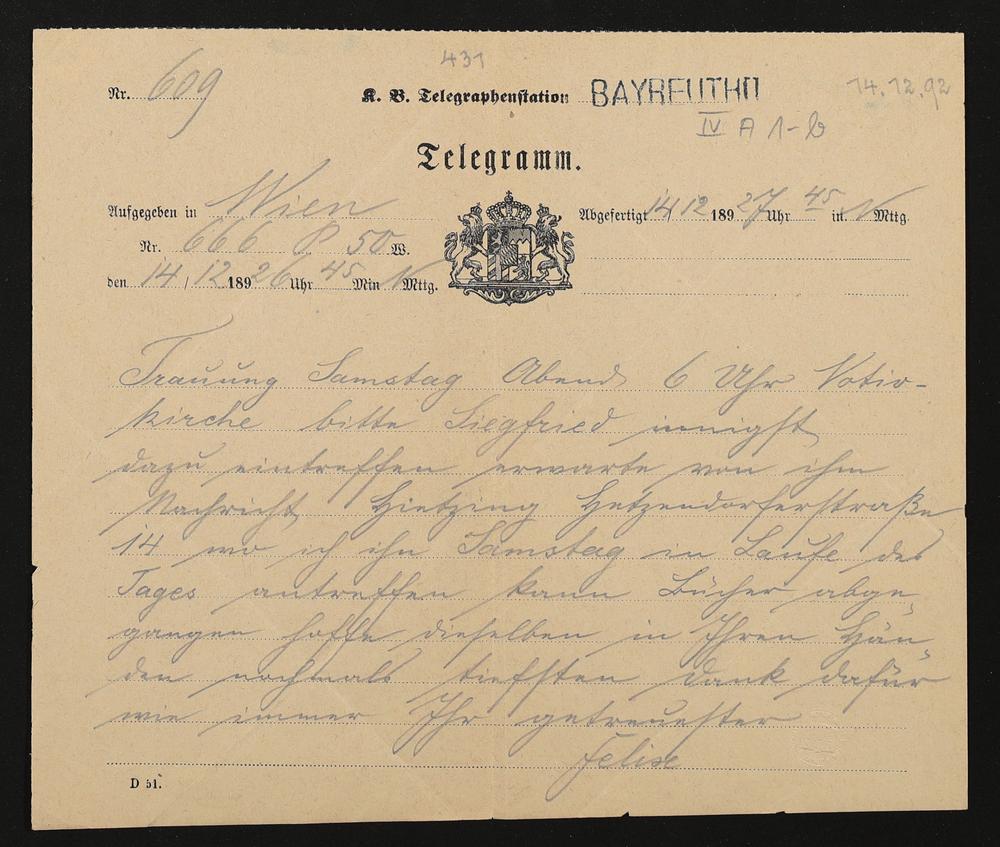 431
Nr. 609
K. B. Telegraphenstation BAYREUTH II
14.12.92
IV A 1-b
Telegramm.
Aufgegeben in Wien
Abgefertigt 14/12 1892 7 Uhr 45 in. N Mttg.
Nr. 666 P 50 W.
den 14/12 1892 6 Uhr 45 Min N Mttg.
Trauung Samstag Abend 6 Uhr Votiv-
kirche bitte Siegfried innigst
dazu eintreffen erwarte von ihm
Nachricht Hietzing Hetzendorferstraße
14 wo ich ihn Samstag im Laufe des
Tages antreffen kann Bücher abge-
gangen hoffe dieselben in Ihren Hän-
den nochmals tiefsten Dank dafür
wie immer Ihr getreuester
Felix
D 51.